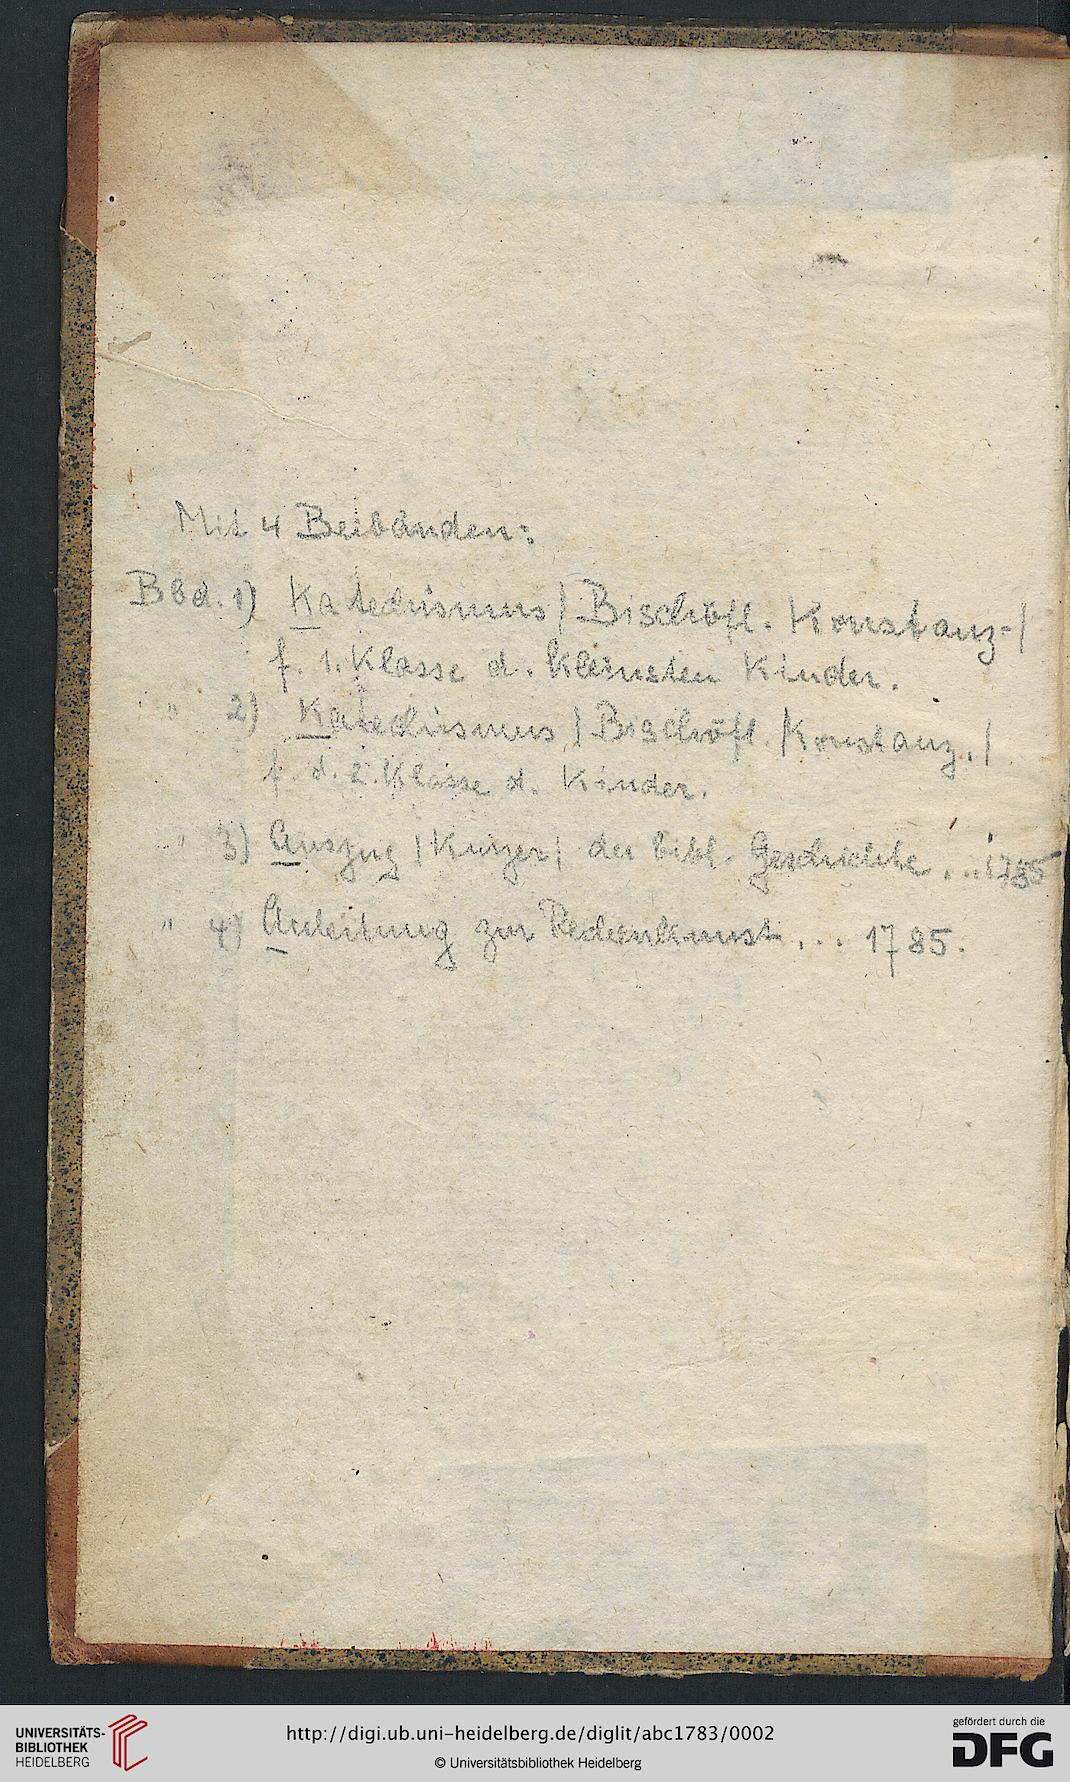 Mit 4 Beibänden:
Bbd. 1) Katechismus / Bischöfl. Konstanz-/
f. 1. Klasse d. kleinsten Kinder.
" 2) Katechismus / Bischöfl. Konstanz. /
f. d. 2. Klasse d. Kinder.
" 3) Auszug / Kurzer / der bibl. Geschichte ... 1785
" 4) Anleitung zur Rechenkunst ... 1785.
UNIVERSITÄTS-
BIBLIOTHEK
HEIDELBERG
http://digi.ub.uni-heidelberg.de/diglit/abc1783/0002
© Universitätsbibliothek Heidelberg
gefördert durch die
DFG